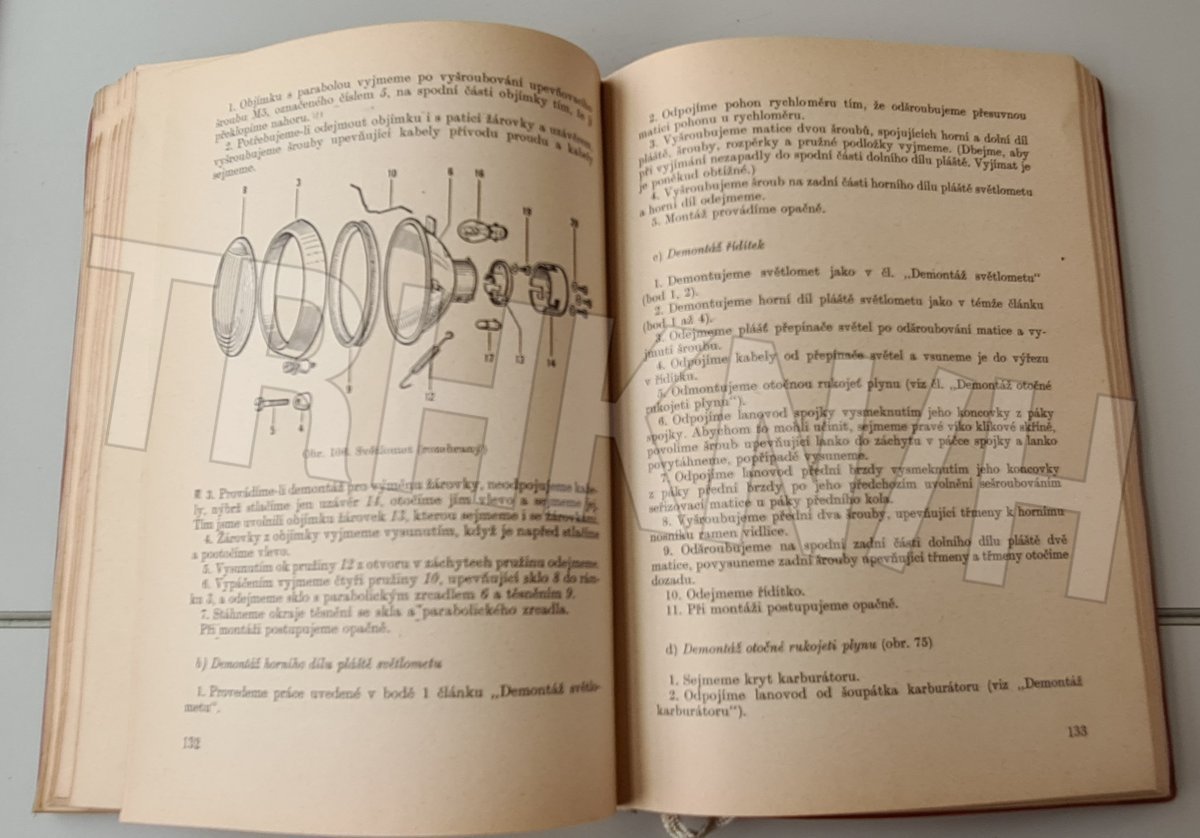 1. Objímku s parabolou vyjmeme po vyšroubování upevňovacího
šroubu M5, označeného číslem 5, na spodní části objímky tím, že ji
překlopíme nahoru.
2. Potřebujeme-li odejmout objímku i s paticí žárovky a uzávěrem,
vyšroubujeme šrouby upevňující kabely přívodu proudu a kabely
sejmeme.
8 3 10 6 16
19 20
9 17 13 14
12
5 4
Obr. 106. Světlomet (rozebraný)
3. Provádíme-li demontáž pro výměnu žárovky, neodpojujeme kabe-
ly, nýbrž stlačíme jen uzávěr 14, otočíme jím vlevo a sejmeme jej.
Tím jsme uvolnili objímku žárovek 13, kterou sejmeme i se žárovkami.
4. Žárovky z objímky vyjmeme vysunutím, když je napřed stlačíme
a pootočíme vlevo.
5. Vysunutím ok pružiny 12 z otvoru v záchytech pružinu odejmeme.
6. Vypáčením vyjmeme čtyři pružiny 10, upevňující sklo 8 do rám-
ku 3, a odejmeme sklo s parabolickým zrcadlem 6 a těsněním 9.
7. Stáhneme okraje těsnění se skla a parabolického zrcadla.
Při montáži postupujeme opačně.
b) Demontáž horního dílu pláště světlometu
1. Provedeme práce uvedené v bodě 1 článku „Demontáž světlo-
metu“.
132
2. Odpojíme pohon rychloměru tím, že odšroubujeme přesuvnou
matici pohonu u rychloměru.
3. Vyšroubujeme matice dvou šroubů, spojujících horní a dolní díl
pláště, šrouby, rozpěrky a pružné podložky vyjmeme. (Dbejme, aby
při vyjímání nezapadly do spodní části dolního dílu pláště. Vyjímat je
je poněkud obtížné.)
4. Vyšroubujeme šroub na zadní části horního dílu pláště světlometu
a horní díl odejmeme.
5. Montáž provádíme opačně.
c) Demontáž řídítek
1. Demontujeme světlomet jako v čl. „Demontáž světlometu“
(bod 1, 2).
2. Demontujeme horní díl pláště světlometu jako v témže článku
(bod 1 až 4).
3. Odejmeme plášť přepínače světel po odšroubování matice a vy-
jmutí šroubu.
4. Odpojíme kabely od přepínače světel a vsuneme je do výřezu
v řídítku.
5. Odmontujeme otočnou rukojeť plynu (viz čl. „Demontáž otočné
rukojeti plynu“).
6. Odpojíme lanovod spojky vysmeknutím jeho koncovky z páky
spojky. Abychom to mohli učinit, sejmeme pravé víko klikové skříně,
povolíme šroub upevňující lanko do záchytu v páčce spojky a lanko
povytáhneme, popřípadě vysuneme.
7. Odpojíme lanovod přední brzdy vysmeknutím jeho koncovky
z páky přední brzdy po jeho předchozím uvolnění sešroubováním
seřizovací matice u páky předního kola.
8. Vyšroubujeme přední dva šrouby, upevňující třmeny k hornímu
nosníku ramen vidlice.
9. Odšroubujeme na spodní zadní části dolního dílu pláště dvě
matice, povysuneme zadní šrouby upevňující třmeny a třmeny otočíme
dozadu.
10. Odejmeme řídítko.
11. Při montáži postupujeme opačně.
d) Demontáž otočné rukojeti plynu (obr. 75)
1. Sejmeme kryt karburátoru.
2. Odpojíme lanovod od šoupátka karburátoru (viz „Demontáž
karburátoru“).
133
TREKNIH